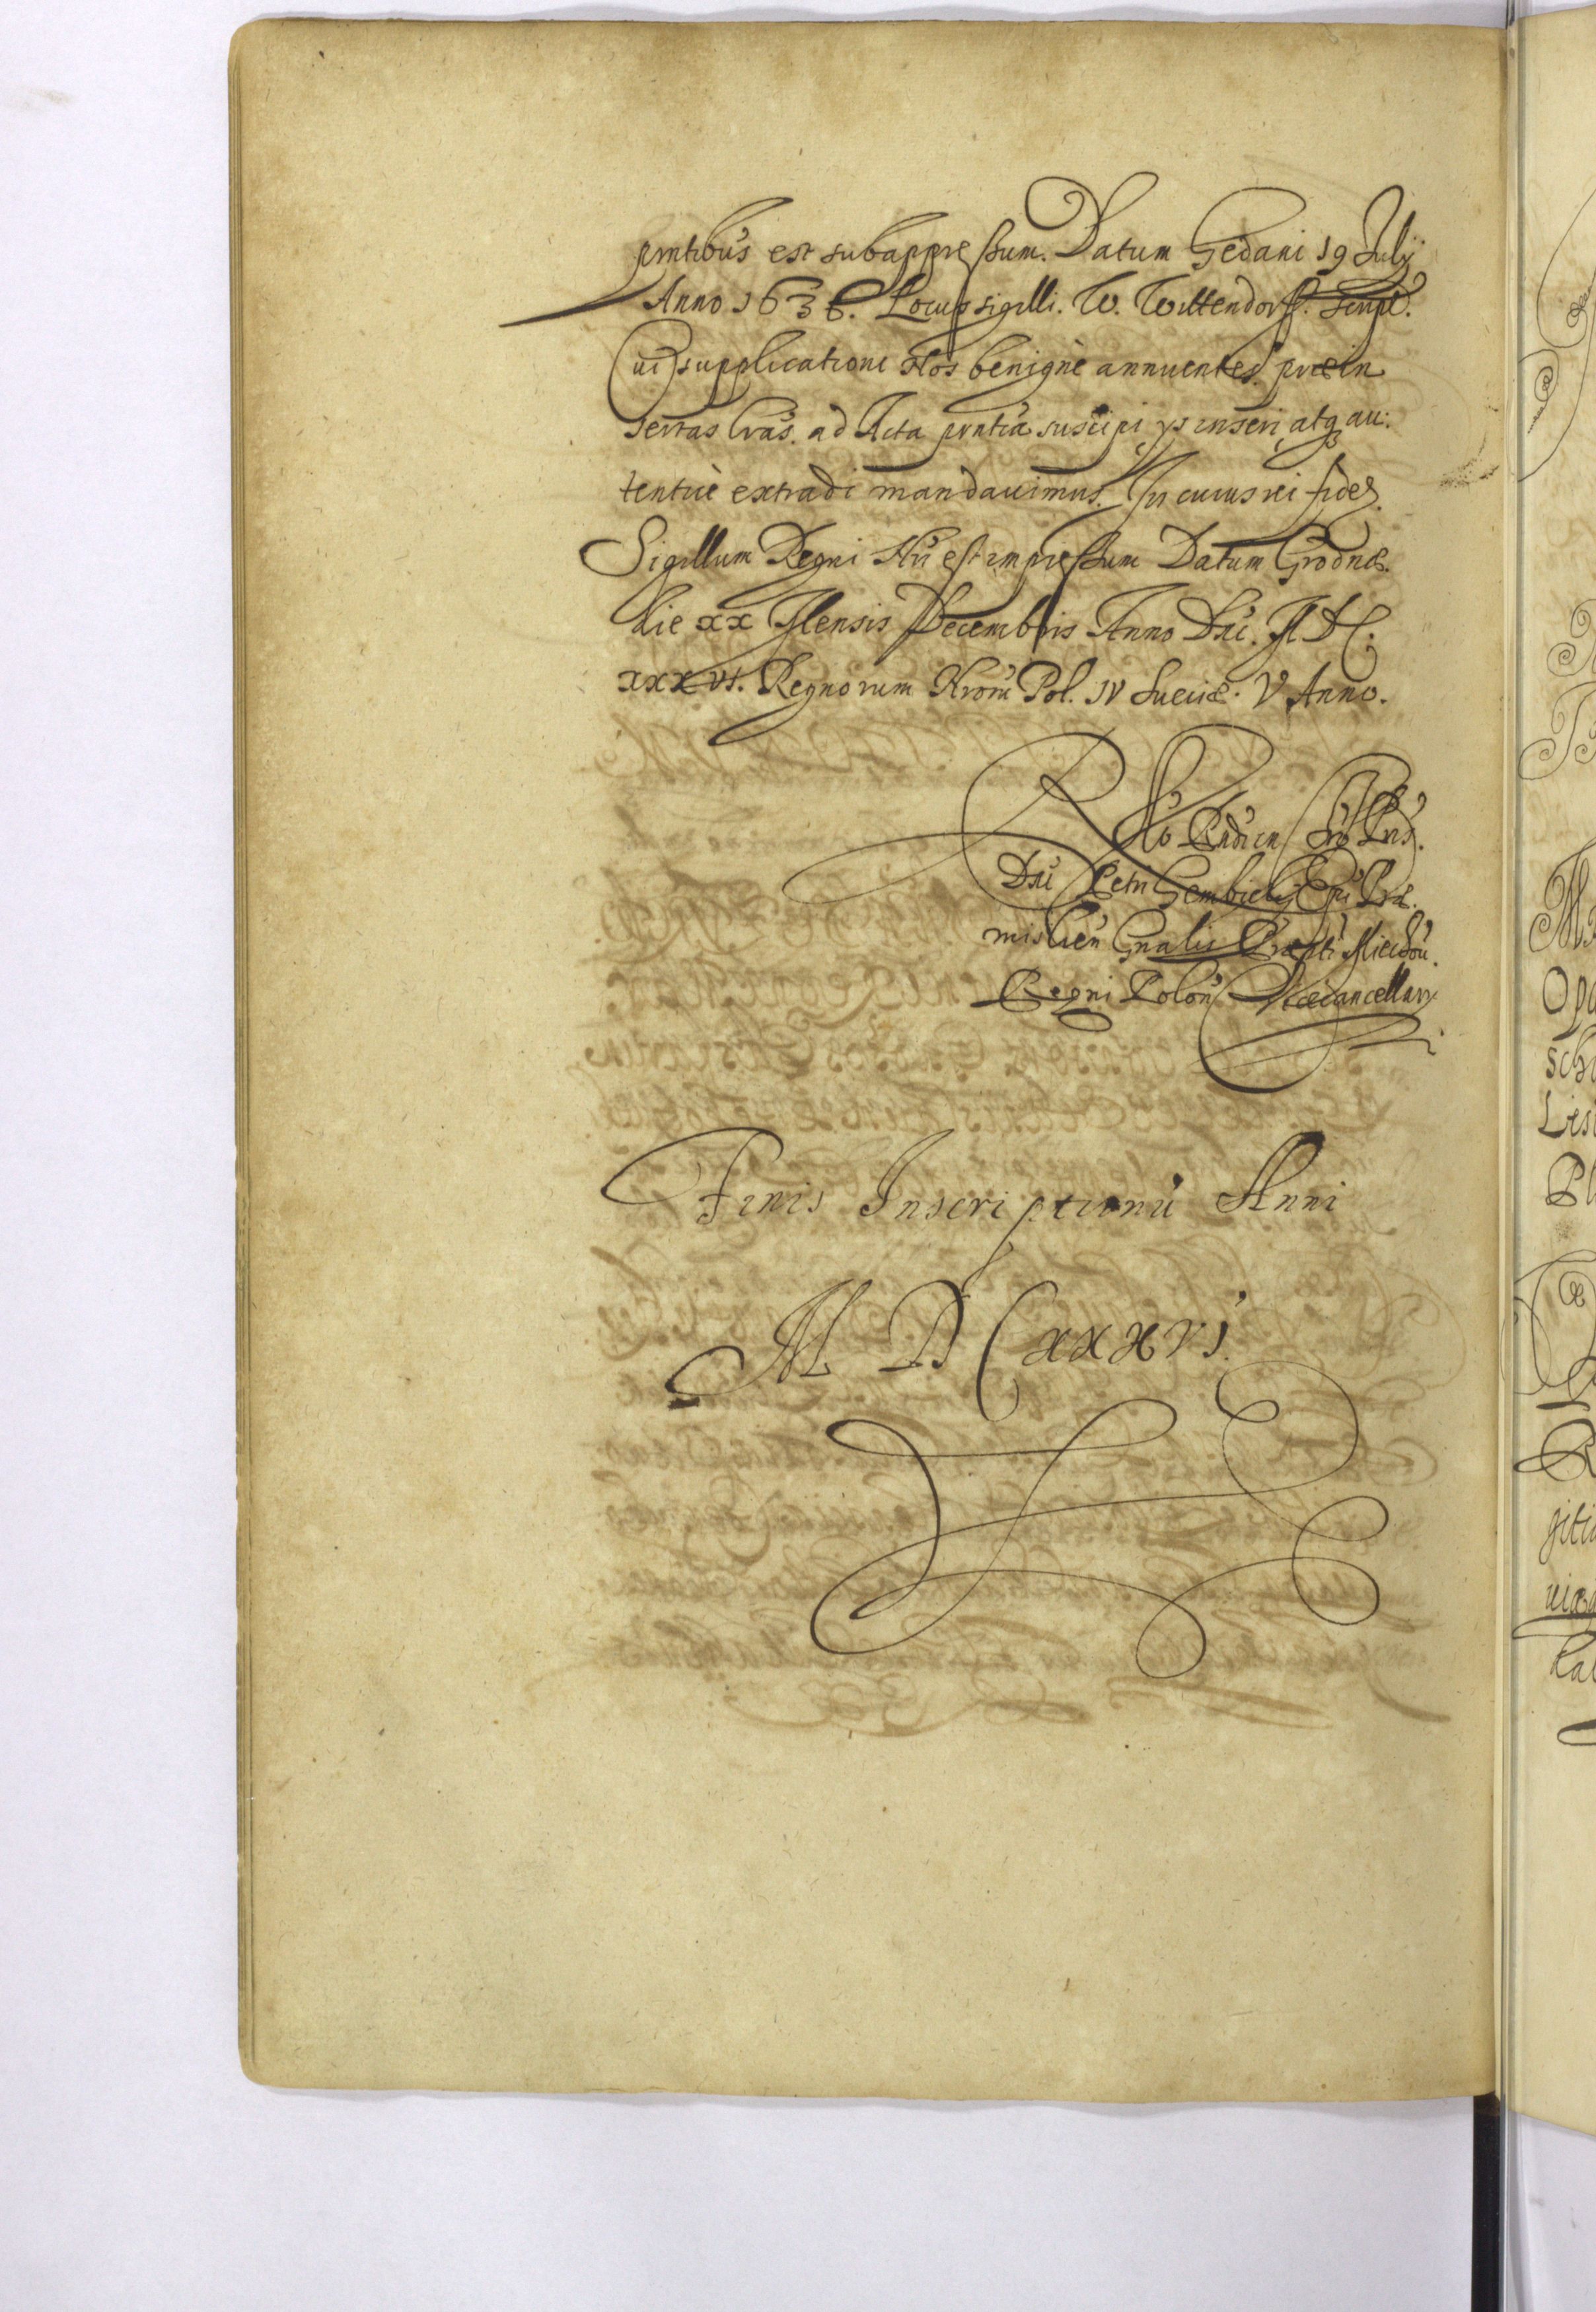 pntibus est subappressum. Datum Gedani 19 Julij
Anno 1636. Locus sigilli. W. Wittendorff. Script.
Cui supplicationi Nos benignè annuentes præin
sertas Lras. ad Acta pntia suscipi ys inseri, atq au:
tenticè extradi mandauimus. In cuius rei fidem
Sigillum Regni Nri est impressum Datum Grodnæ.
die xx Mensis Decembris Anno Dni. M D C.
xxxvi. Regnorum Nrorũ Pol. IV Sueciæ. V Anno.
Dni Petri Gembicky Epi Præ.
mislien Gnalis Præpti Miechou.
Regni Polon Vicecancellarij
Finis Inscriptionũ Anni
M D C xxxvi